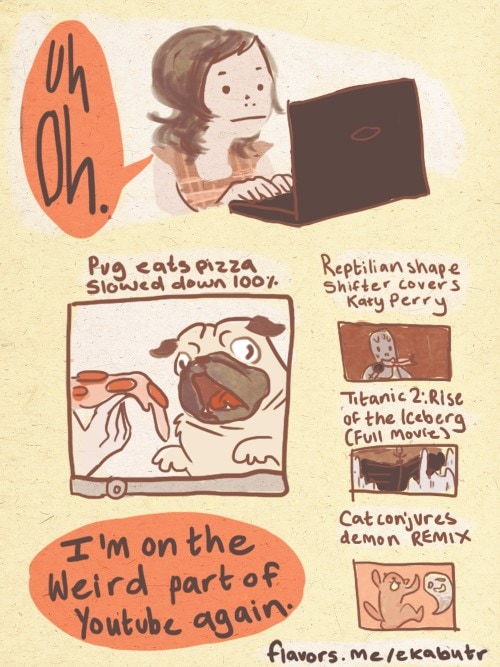 Uh
Oh.
Pug eats pizza
Slowed down 100%
Reptilian shape
Shifter covers
Katy Perry
Titanic 2: Rise
of the Iceberg
(Full Movie)
Cat conjures
demon REMIX
I'm on the
Weird part of
Youtube again.
flavors.me/ekabutr